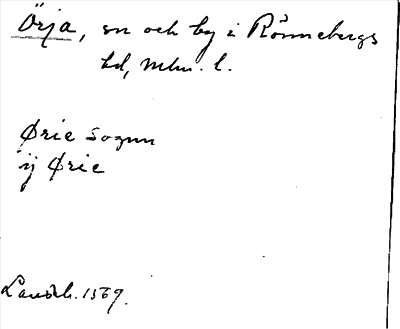 Örja, sn och by i Rönnebergs
hd, Mlm. l.
Ørie Sognn
ij Ørie
Landeb. 1569.